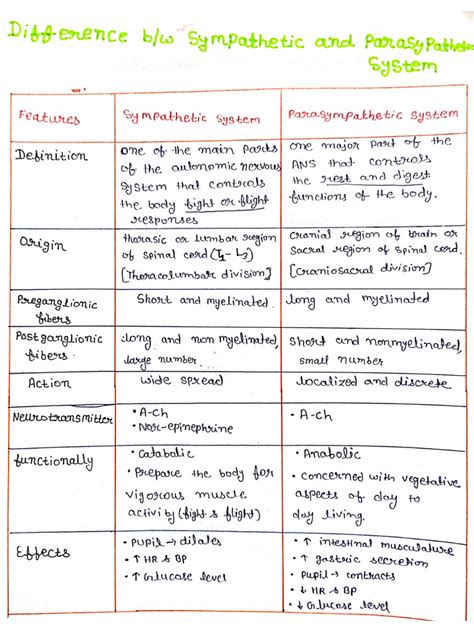 Difference b/w Sympathetic and Parasympathetic
System
Features
Sympathetic System
Parasympathetic System
Definition
one of the main parts
of the autonomic nervous
system that controls
the body fight or flight
responses
one major part of the
ANS that controls
the rest and digest
functions of the body.
Origin
thorasic or lumbar region
of spinal cord (T₁-L₂)
[Thoracolumbar division]
cranial region of brain or
sacral region of spinal cord.
[Craniosacral division]
Preganglionic
fibers
Short and myelinated.
long and myelinated
Postganglionic
fibers.
long and non myelinated,
large number.
short and nonmyelinated,
small number
Action
wide spread
localized and discrete
Neurotransmitter
• A-ch
• Nor-epinephrine
• A-ch
functionally
• Catabolic
• Prepare the body for
vigorous muscle
activity (fight & flight)
• Anabolic
• concerned with vegetative
aspects of day to
day living.
Effects
• Pupil → dilates
• ↑ HR & BP
• ↑ Glucose level
• ↑ intestinal musculature
• ↑ gastric secretion
• Pupil → contracts
• ↓ HR & BP
• ↓ Glucose level